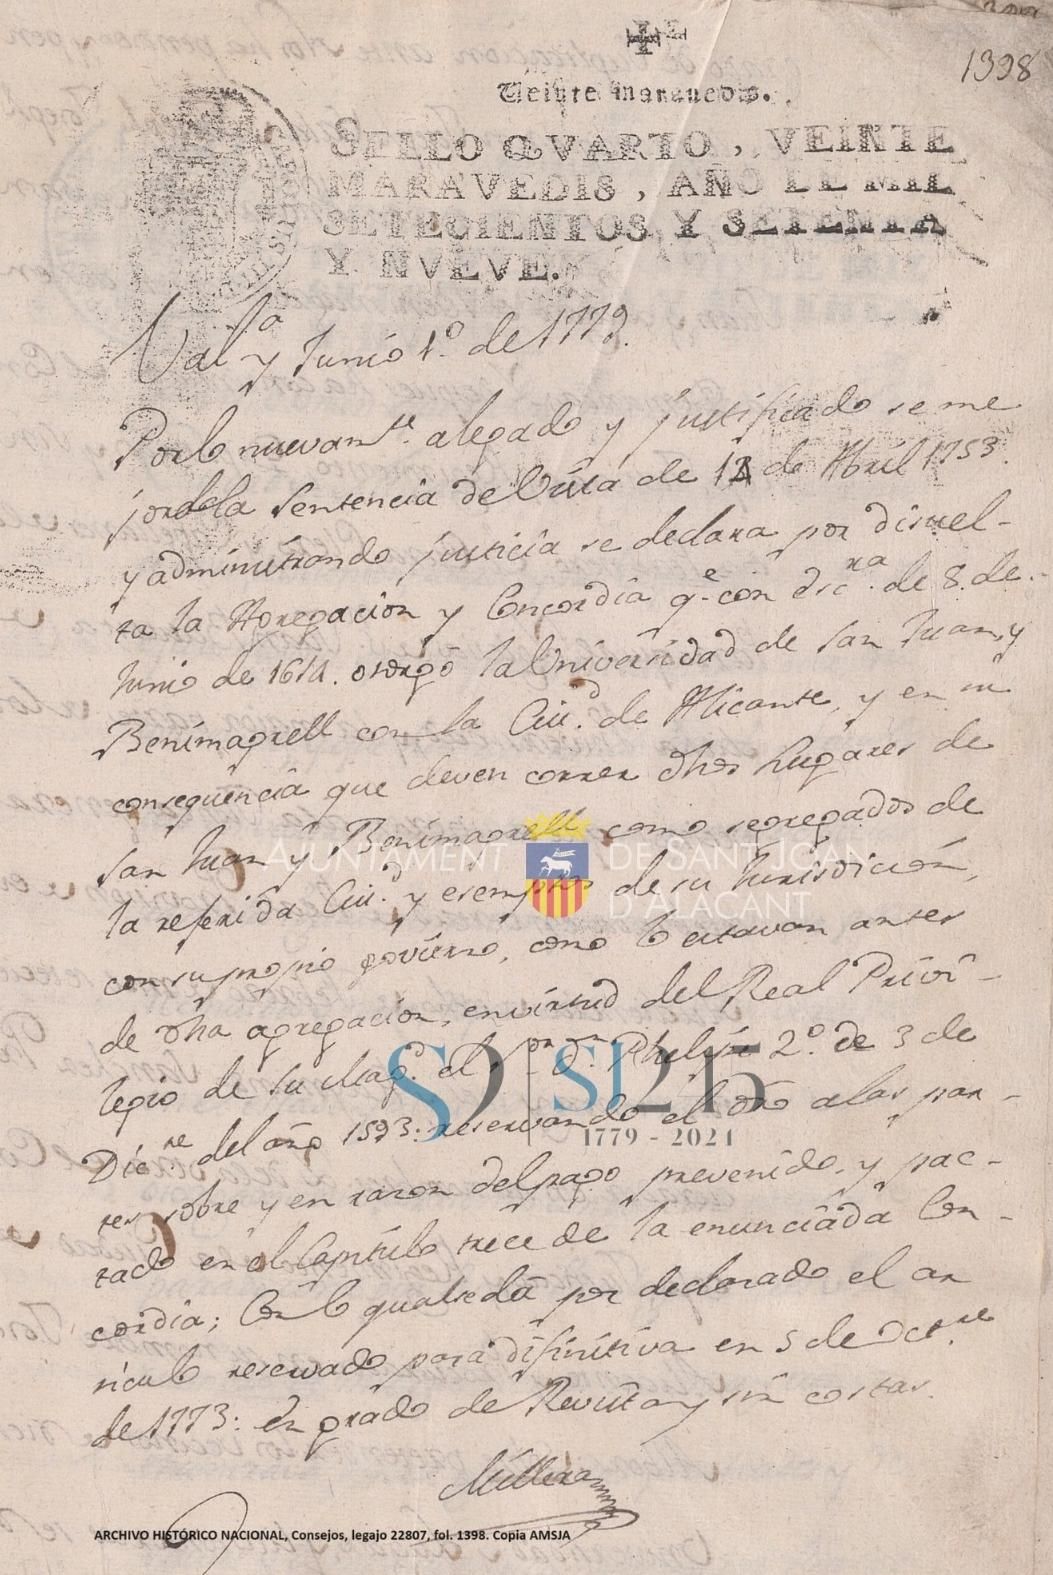 1398
Veinte maravedis.
SELLO QVARTO, VEINTE
MARAVEDIS, AÑO DE MIL
SETECIENTOS Y SETENTA
Y NVEVE.
Val.ª y Junio 1.º de 1779.
Por lo nuevam.te alegado y justificado se me
jora la sentencia de Vista de 12 de Abril 1753.
y administrando justicia se declara por disuel-
ta la Agregacion y Concordia q.e con Esc.ra de 8. de
Junio de 1614. otorgó la Universidad de San Juan, y
Benimagrell con la Ciu.d de Alicante, y en su
consequencia que deven correr dhos Lugares de
San Juan y Benimagrell como segregados de
la referida Ciu.d y esemptos de su Jurisdición,
con su propio govierno, como lo estavan antes
de dha agregacion, en virtud del Real Privi-
legio de su Mag.d el S.or D.n Phelipe 2.º de 3 de
Dic.re del año 1593: reservando el dro a las par-
tes sobre y en razon del pago prevenido, y pac-
tado en el Capítulo trece de la enunciada Con-
cordia; Con lo qual se dá por declarado el ar
ticulo reservado para difinitiva en 5 de Oct.re
de 1773: en grado de Revista y sin costas.
AJUNTAMENT DE SANT JOAN
D'ALACANT
SJ215
1779 - 2024
ARCHIVO HISTÓRICO NACIONAL, Consejos, legajo 22807, fol. 1398. Copia AMSJA